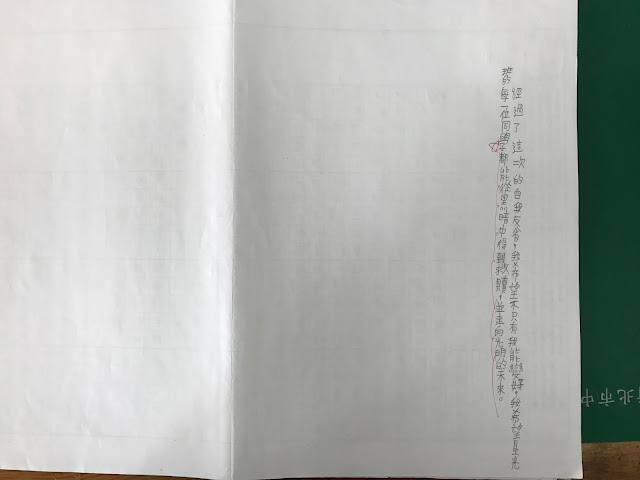 經過了這一次的自我反省，我希望不只有我能變好，我希望星光
班的每一位同學都能從黑暗中得到救贖，並走向光明的未來。
北市中